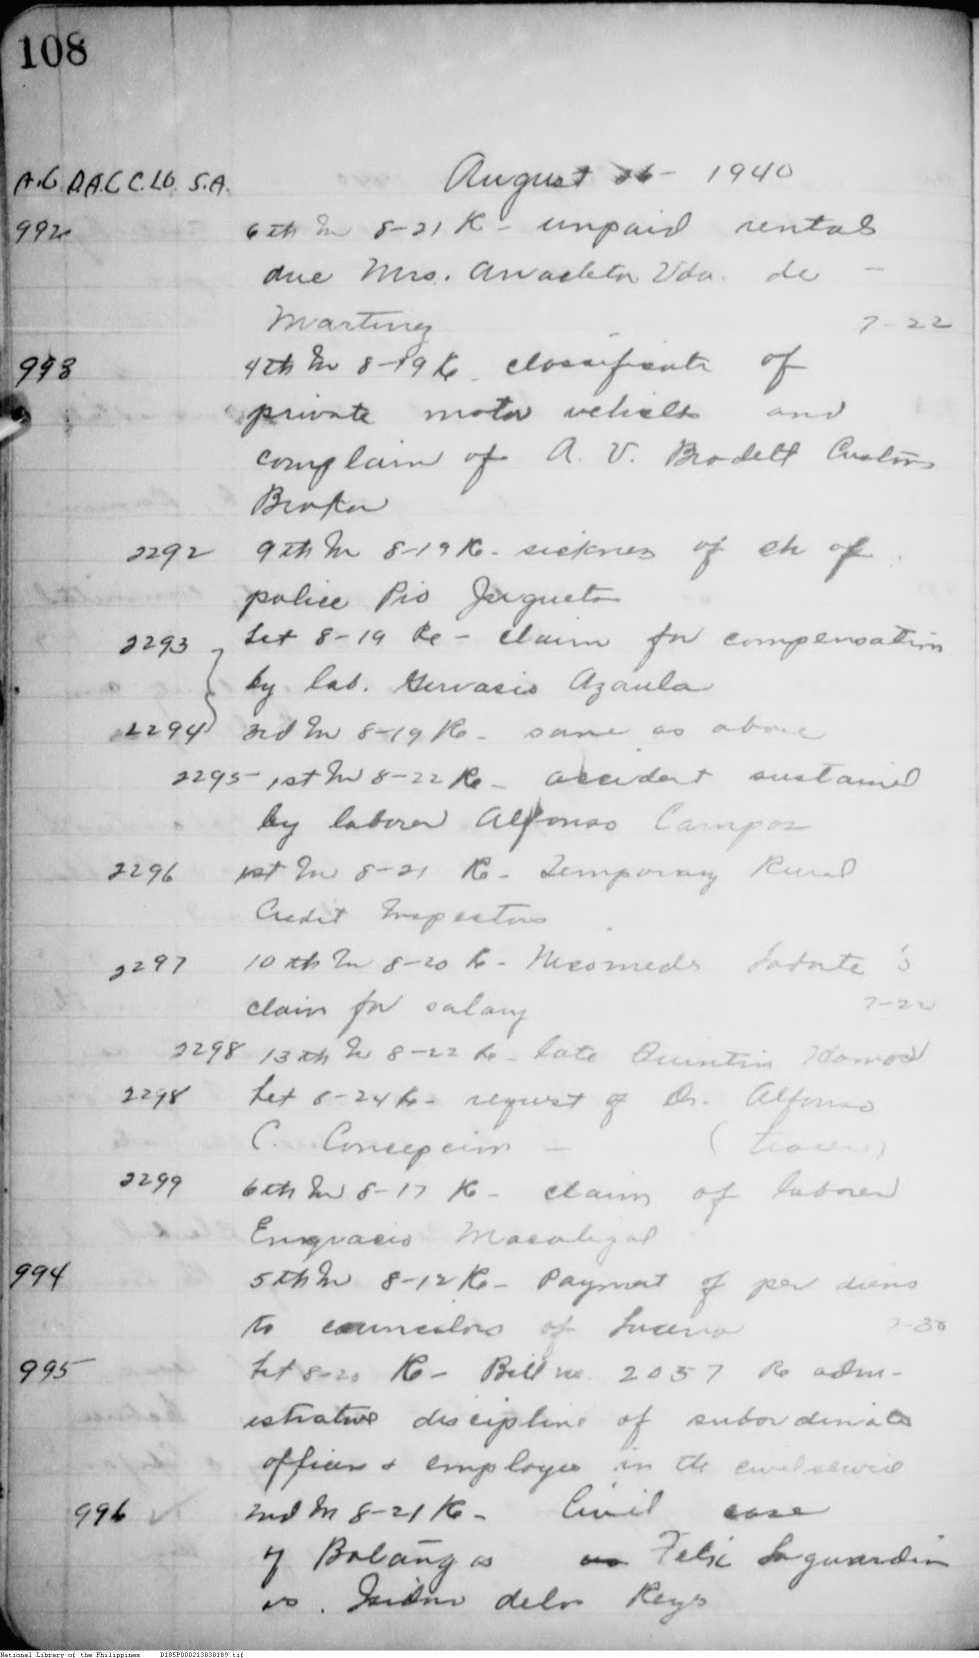 108
A.G. D.A.C C.LO. S.A.
August 26 - 1940
992 6th In 8-21 Re - unpaid rentals
due Mrs. Anacleta Vda. de -
Martinez 7-22
993 4th In 8-19 Re classificate of
private motor vehicles and
complain of A. V. Brodett Customs
Broker
2292 9th In 8-19 Re - sickness of ch of
police Pio Jugueta
2293 Let 8-19 Re - claim for compensation
by lab. Gervasio Azaula
2294 3rd In 8-19 Re - same as above
2295 - 1st In 8-22 Re - accident sustained
by laborer Alfonso Campos
2296 1st In 8-21 Re - Temporary Rural
Credit Inspectors
2297 10th In 8-20 Re - Nicomedes 's
claim for salary 7-22
2298 13th In 8-22 Re - late Quintin
2298 Let 8-24 Re - request of Dr. Alfonso
C. Concepcion - (tracer)
2299 6th In 8-17 Re - claim of laborer
Engracio Macalegal
994 5th In 8-12 Re - Payment of per diems
to councilors of Lucena 7-30
995 Let 8-20 Re - Bill no. 2057 Re adm-
istrative discipline of subordinate
officers & employees in the civil service
996 2nd In 8-21 Re - Civil case
of Batangas Felix Laguardia
vs. Isidro delos Reys
National Library of the Philippines D185P000213838189.tif